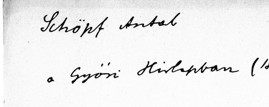 Schöpf Antal
a Győri Hirlapban (